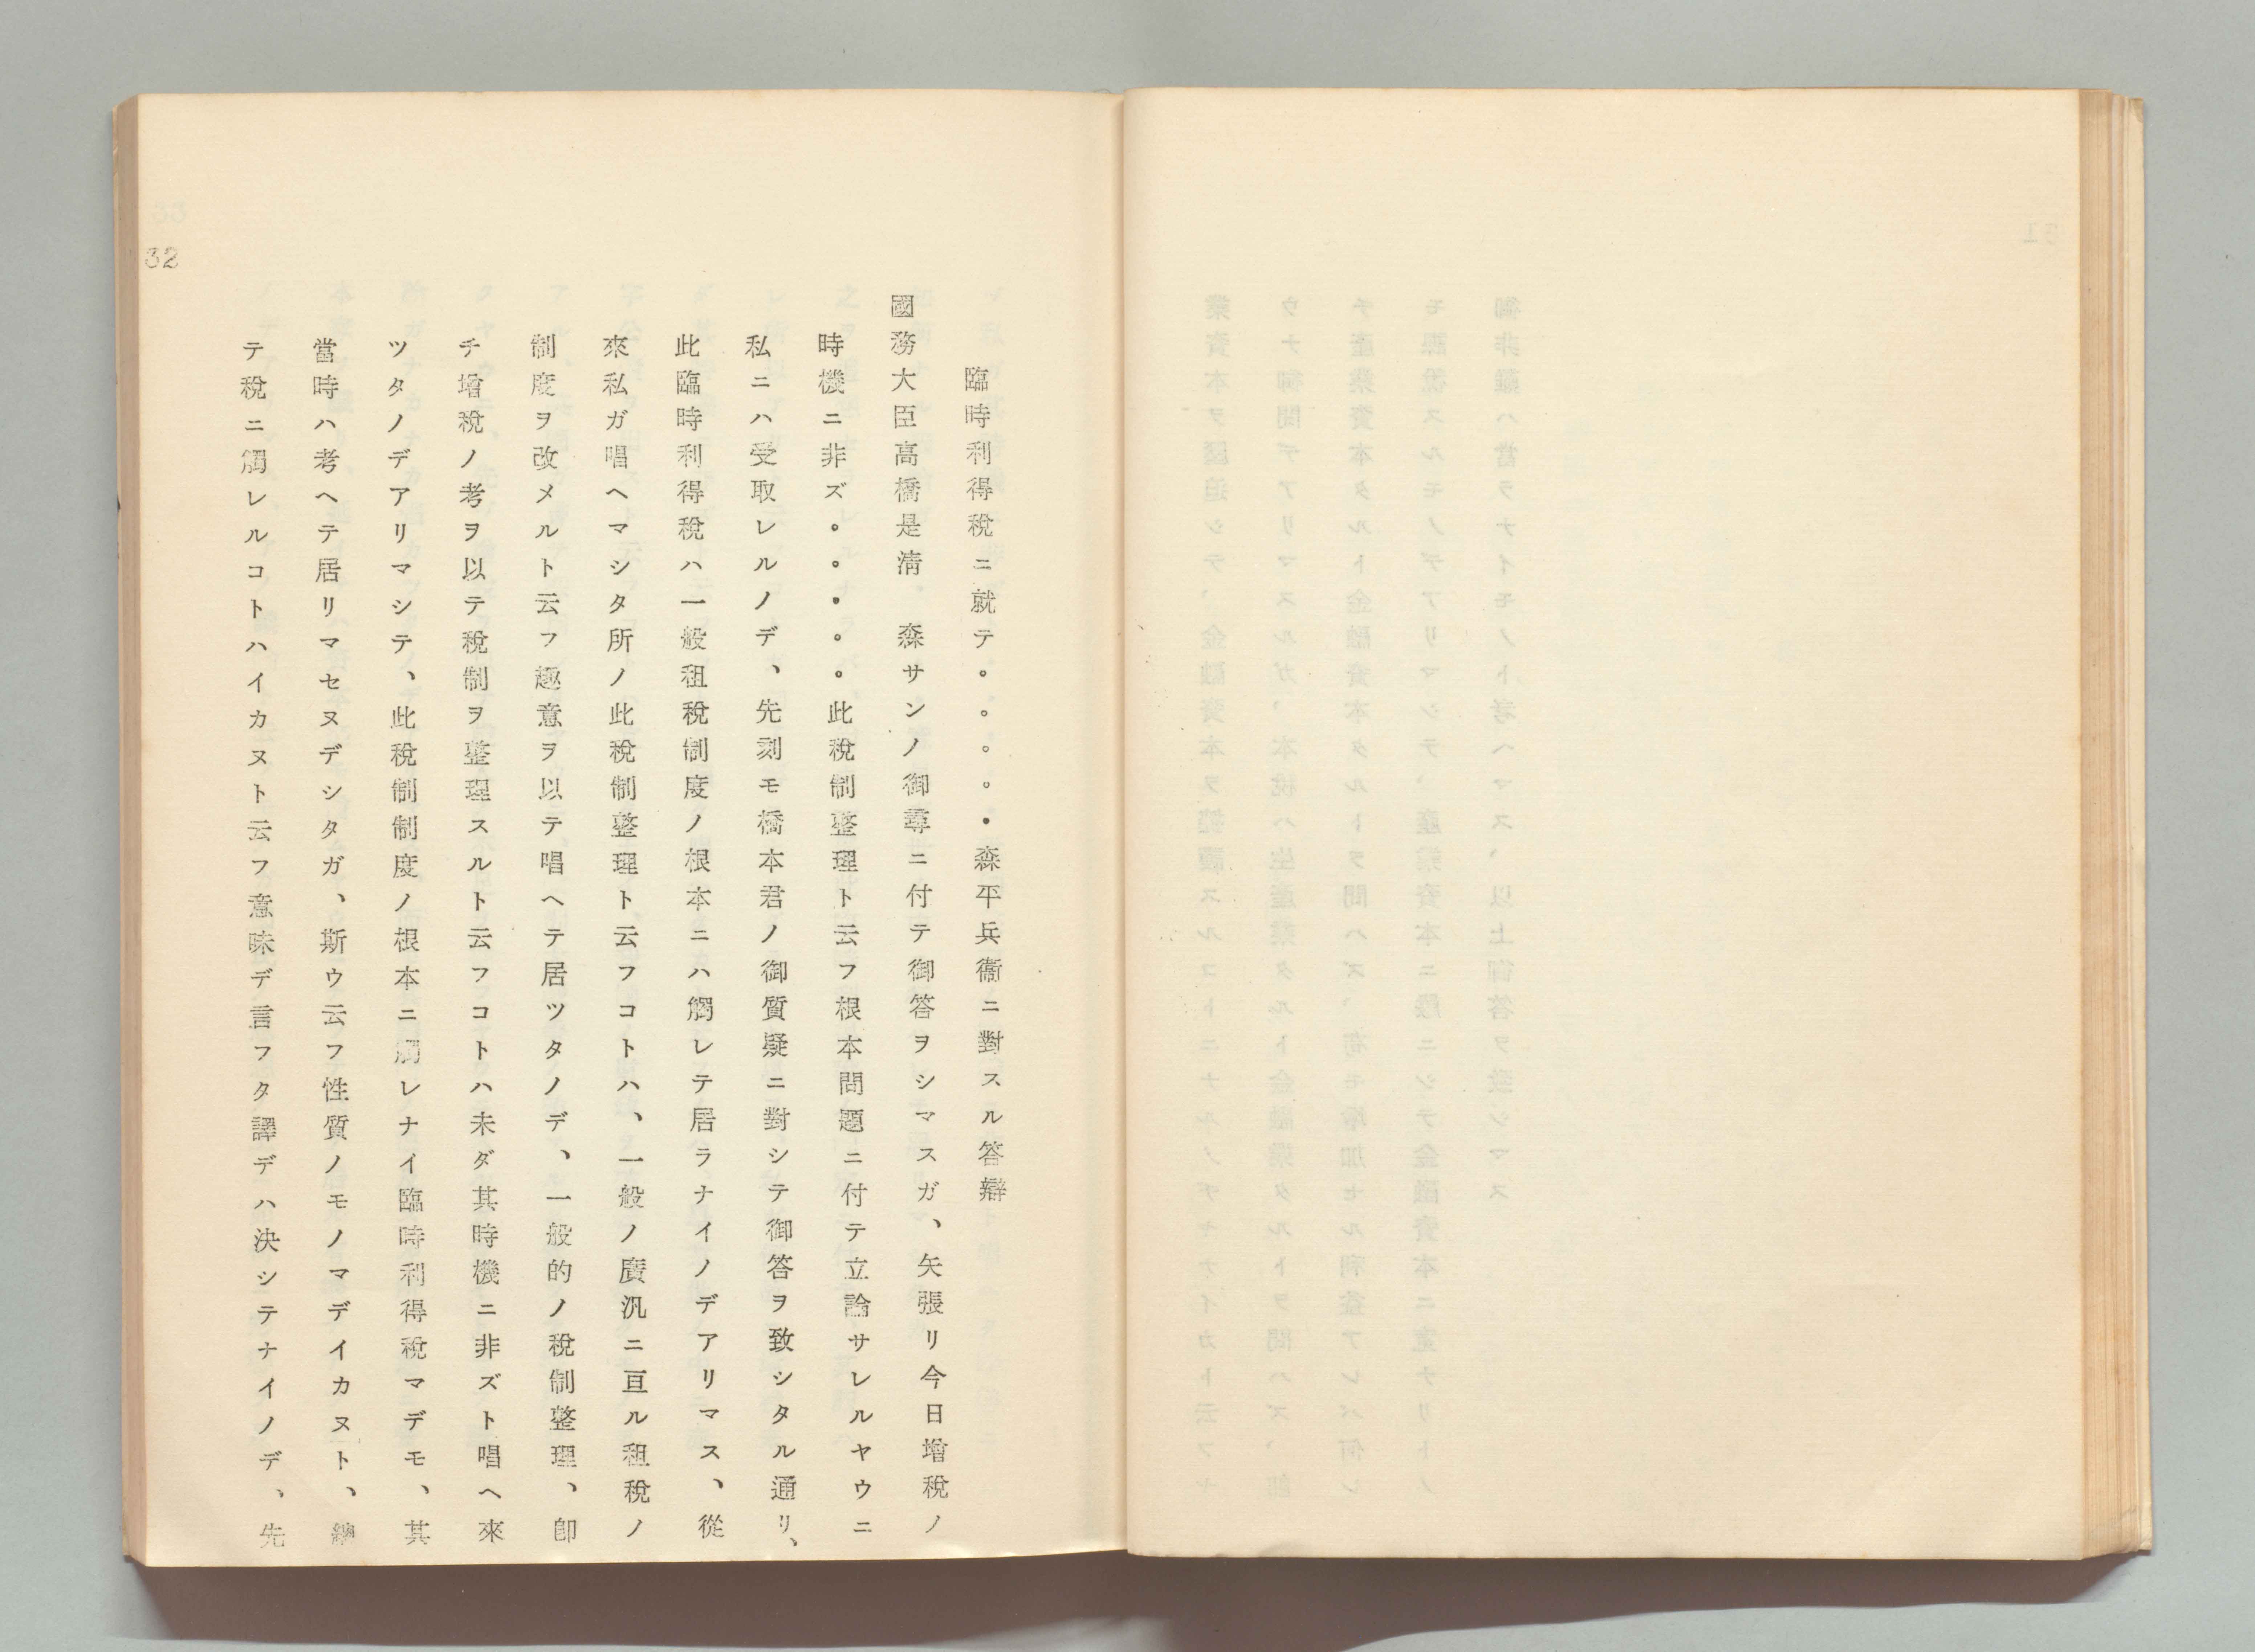 臨時利得稅ニ就テ。。。。・森平兵衞ニ對スル答辯
國務大臣高橋是淸・森サンノ御尋ニ付テ御答ヲシマスガ、矢張リ今日增稅ノ
時機ニ非ズ。。・。。此稅制整理ト云フ根本問題ニ付テ立論サレルヤウニ
私ニハ受取レルノデ、先刻モ橋本君ノ御質疑ニ對シテ御答ヲ致シタル通リ、
此臨時利得稅ハ一般租稅制度ノ根本ニハ觸レテ居ラナイノデアリマス、從
來私ガ唱ヘマシタ所ノ此稅制整理ト云フコトハ、一般ノ廣汎ニ亘ル租稅ノ
制度ヲ改メルト云フ趣意ヲ以テ唱ヘテ居ツタノデ、一般的ノ稅制整理、卽
チ增稅ノ考ヲ以テ稅制ヲ整理スルト云フコトハ未ダ其時機ニ非ズト唱ヘ來
ツタノデアリマシテ、此稅制制度ノ根本ニ觸レナイ臨時利得稅マデモ、其
當時ハ考ヘテ居リマセヌデシタガ、斯ウ云フ性質ノモノマデイカヌト、總
テ稅ニ觸レルコトハイカヌト云フ意味デ言フタ譯デハ決シテナイノデ、先
32